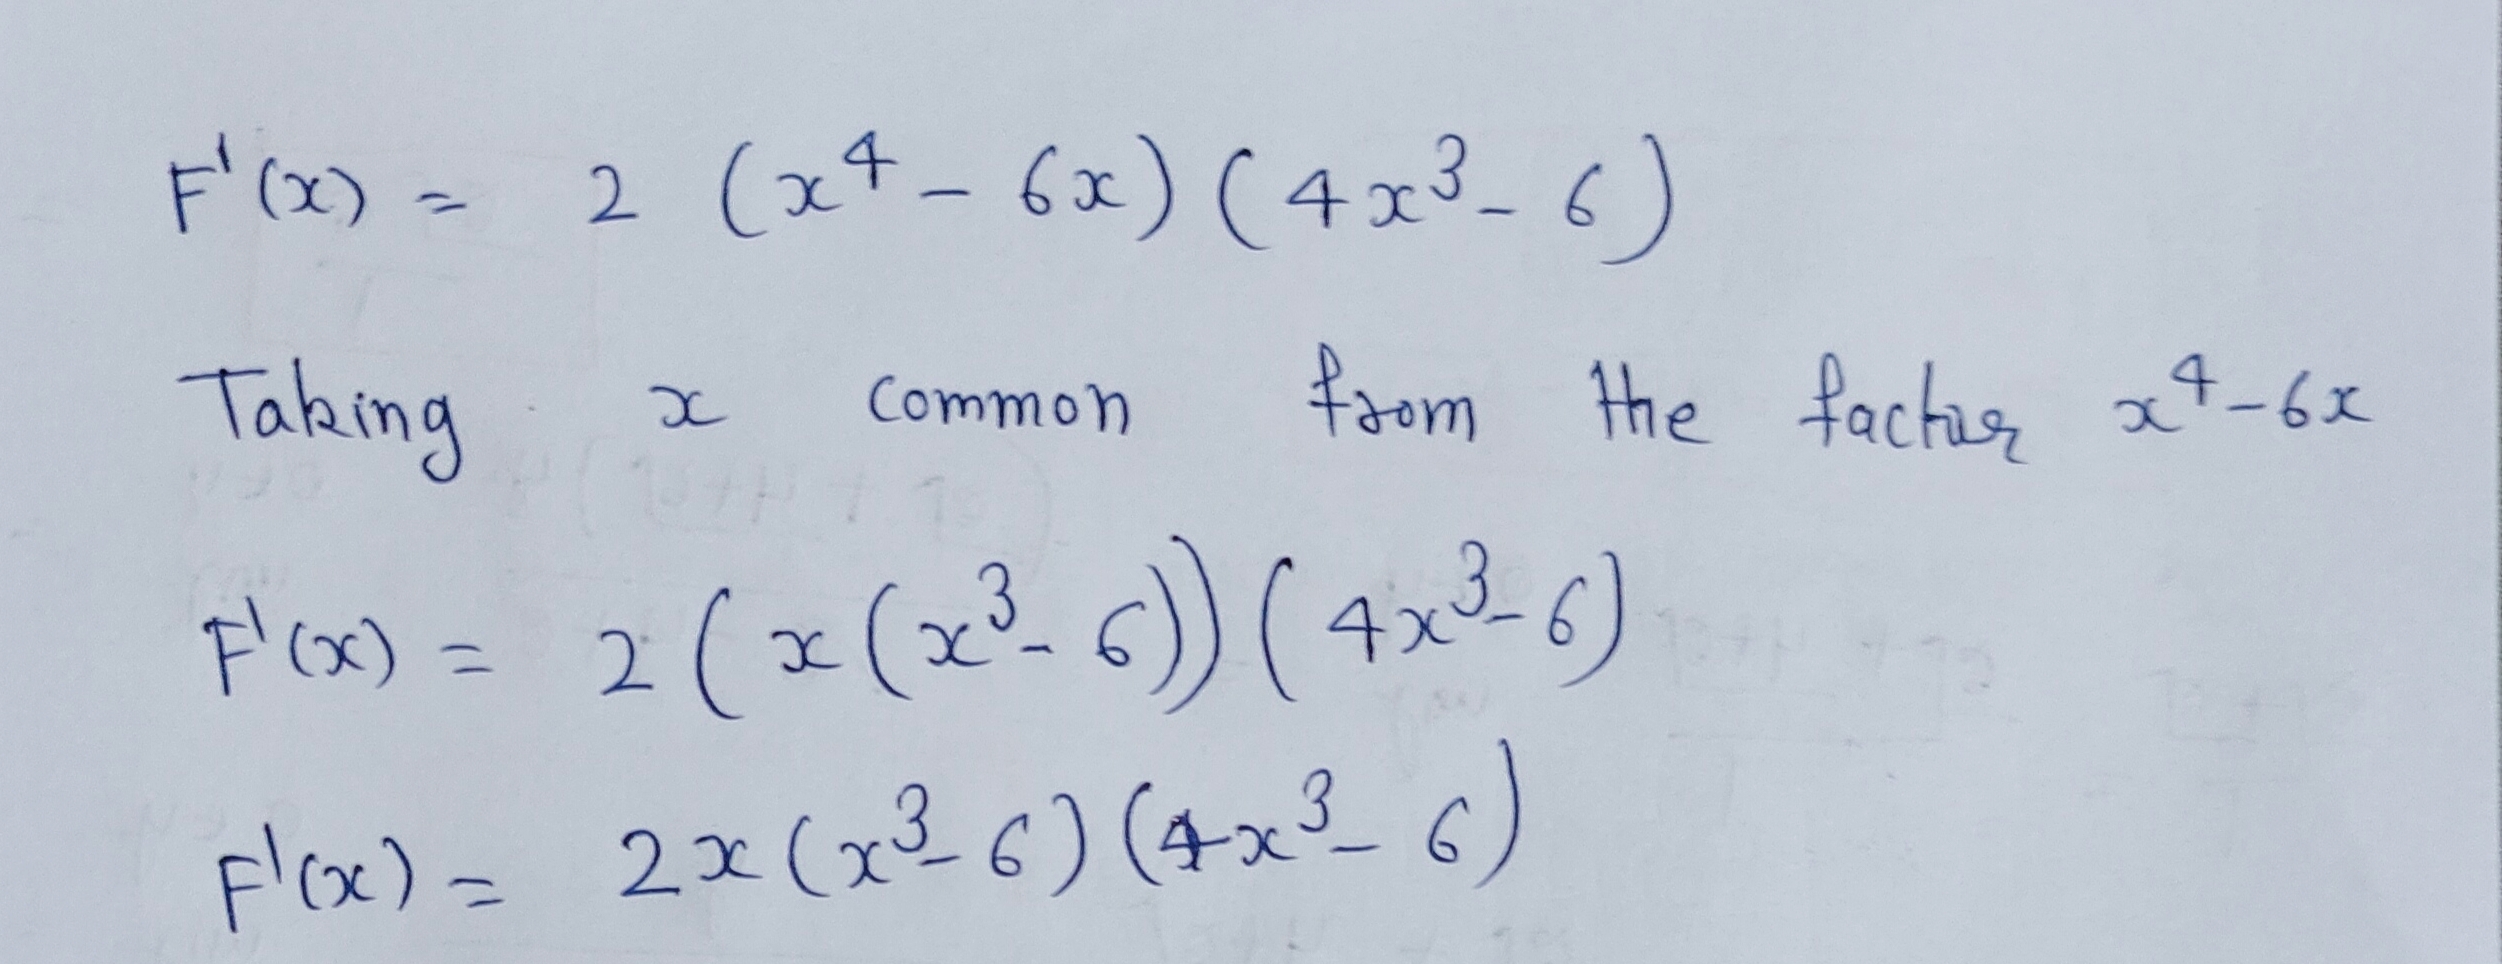 F'(x) = 2 (x⁴ - 6x) (4x³ - 6)
Taking x common from the factor x⁴ - 6x
F'(x) = 2 (x (x³ - 6)) (4x³ - 6)
F'(x) = 2x (x³ - 6) (4x³ - 6)